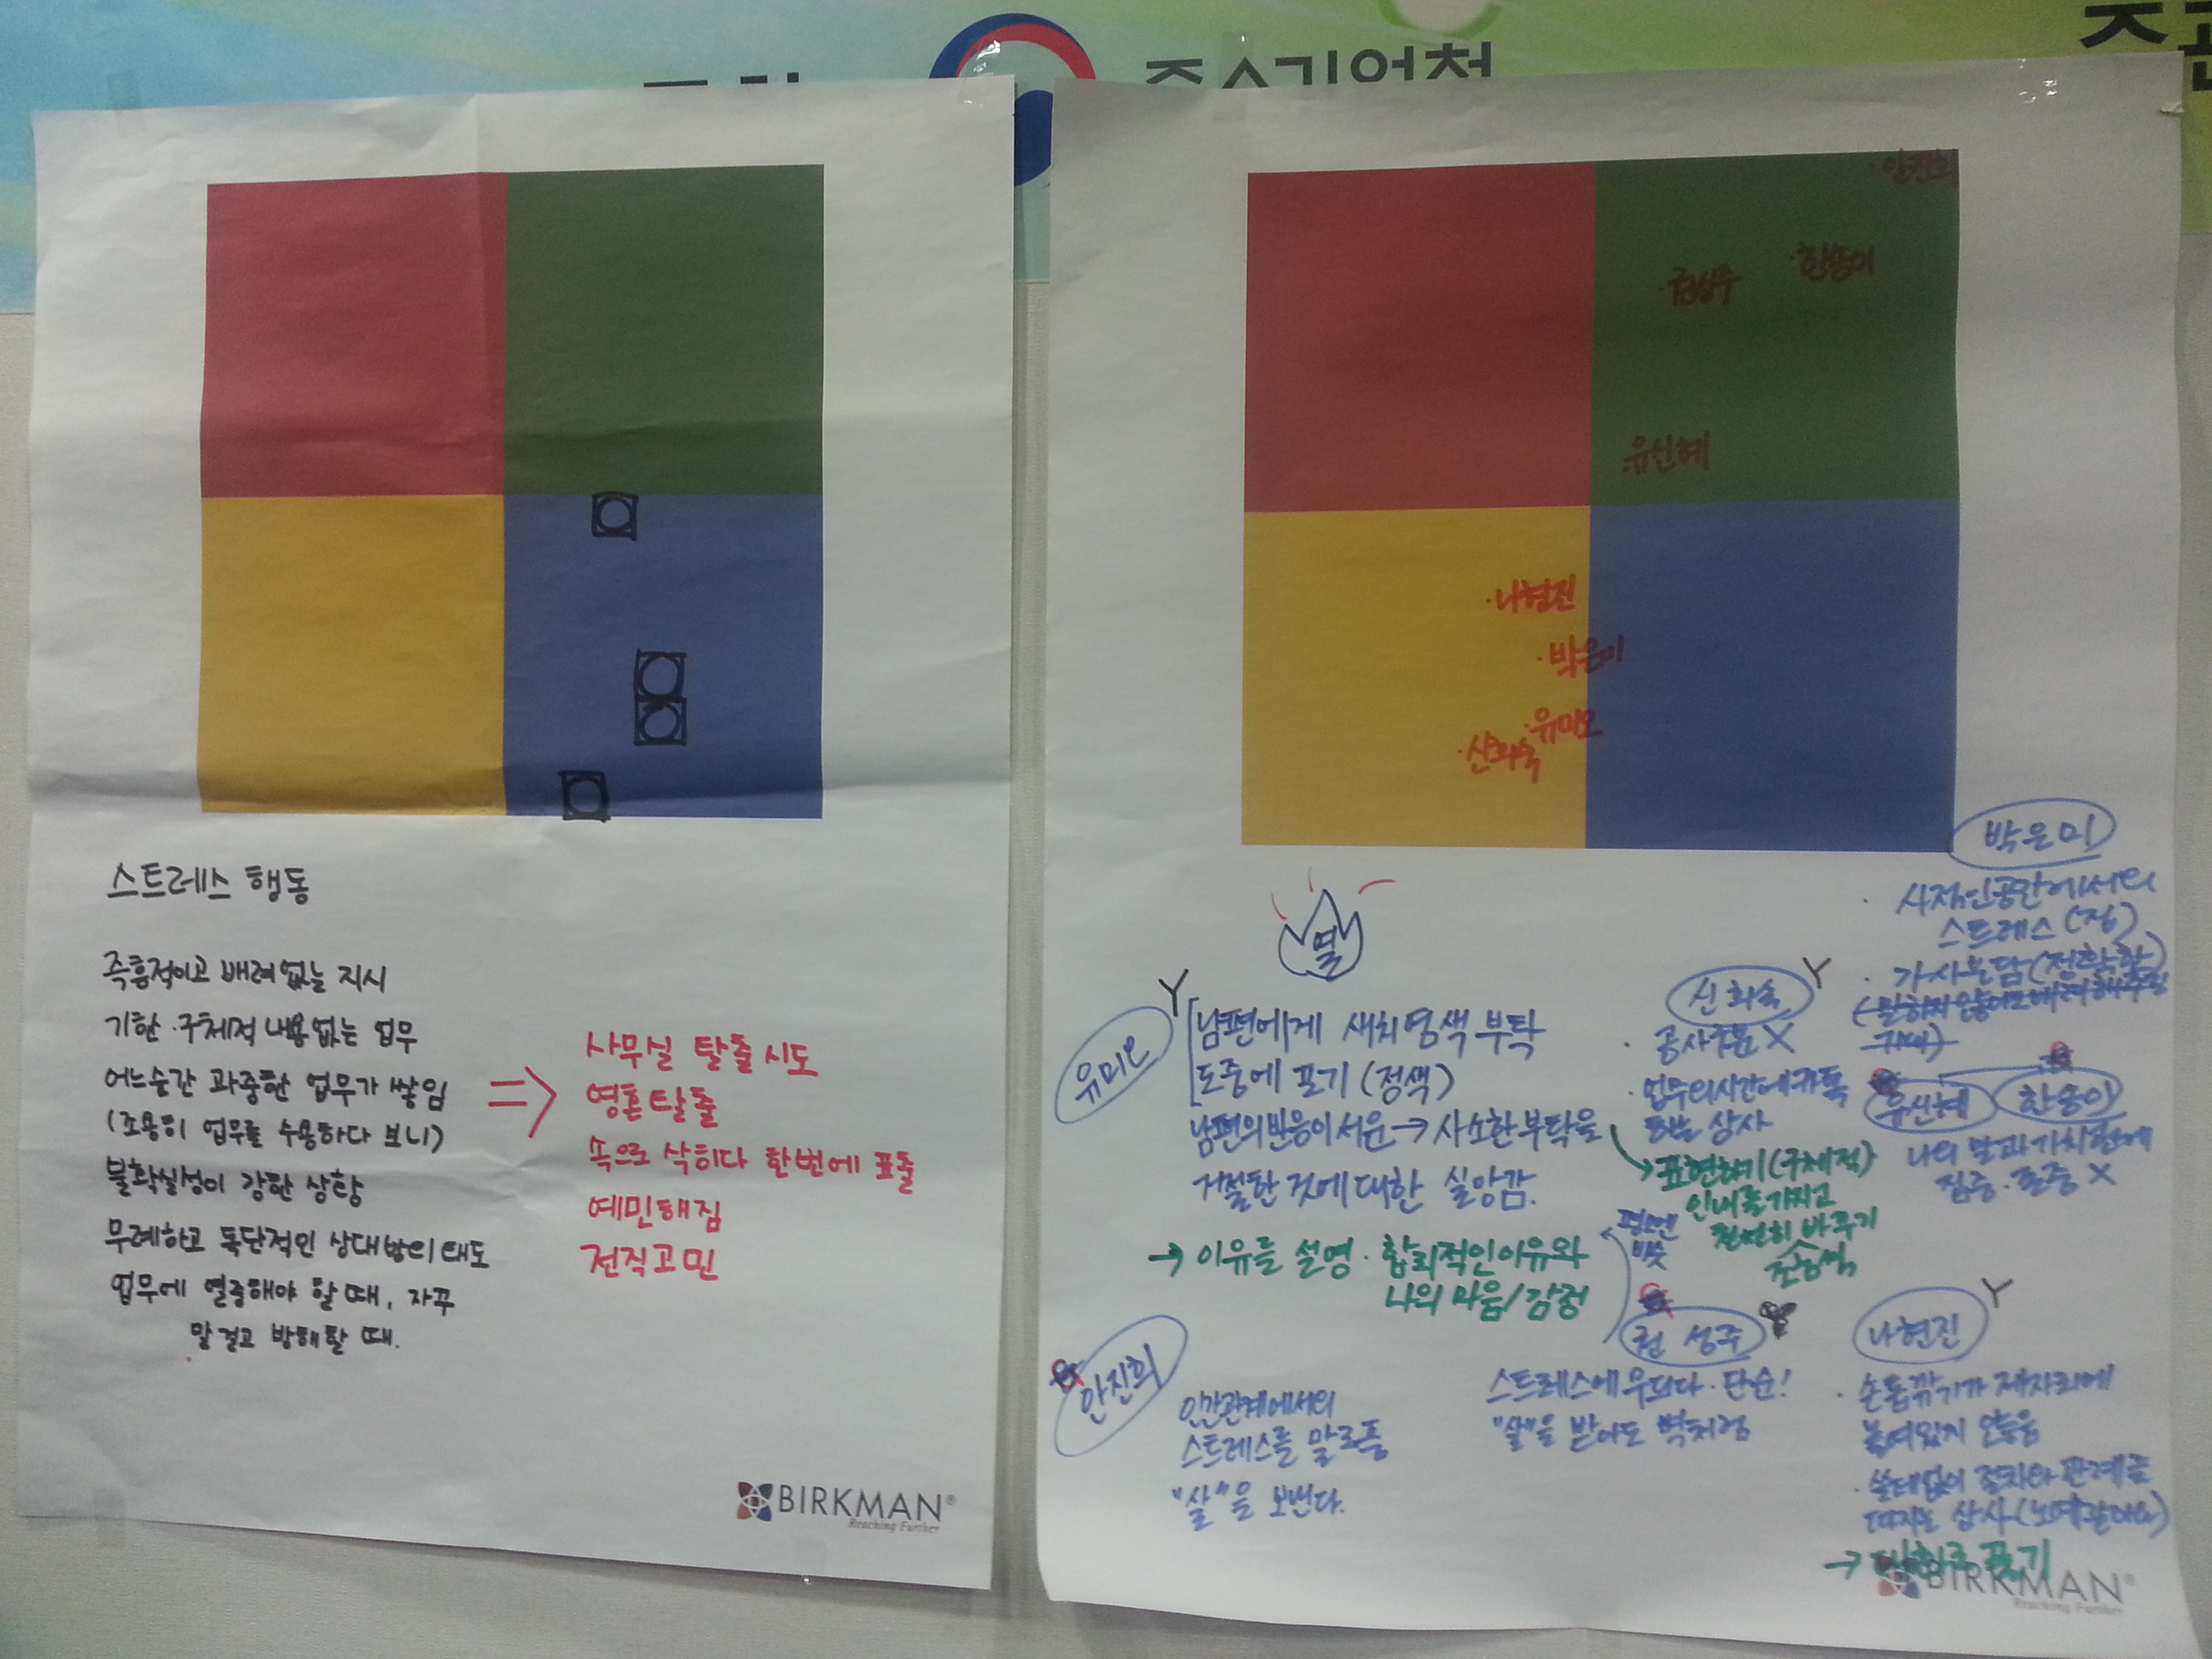 중소기업청
주관
스트레스 행동
즉흥적이고 배려 없는 지시
기한·구체적 내용 없는 업무
어느순간 과중한 업무가 쌓임
(조용히 업무를 수용하다 보니)
불확실성이 강한 상황
무례하고 독단적인 상대방의 태도
업무에 열중해야 할 때, 자꾸
말 걸고 방해할 때.
=>
사무실 탈출 시도
영혼탈출
속으로 삭히다 한번에 표출
예민해짐
전직고민
BIRKMAN®
Reaching Further
안진희
·권성주
·한송이
·유신혜
·나현진
·박은미
·유미오
·신화숙
열
유미오
Y
남편에게 새치염색 부탁
도중에 포기 (정색)
남편의 반응이 서운 → 사소한 부탁을
거절한 것에 대한 실망감.
→ 이유를 설명·합리적인 이유와
나의 마음/감정
신화숙
Y
·공사구분 X
·업무외시간에 카톡
하는 상사
→ 표현하기 (구체적)
인내를 가지고
천천히 바꾸기
박은미
·사적인공간에서의
스트레스 (집)
·가사분담
유신혜
한송이
나의 말과 가치관에
집중·존중 X
안진희
인간관계에서의
스트레스를 말로품
"살"을 보낸다.
권성주
스트레스에 무디다·단순!
"살"을 받아도 벽처럼
나현진
Y
·손톱깎기가 제자리에
놓여있지 않음
·쓸데없이 절차와 관계를
따지는 상사
→
BIRKMAN®
Reaching Further